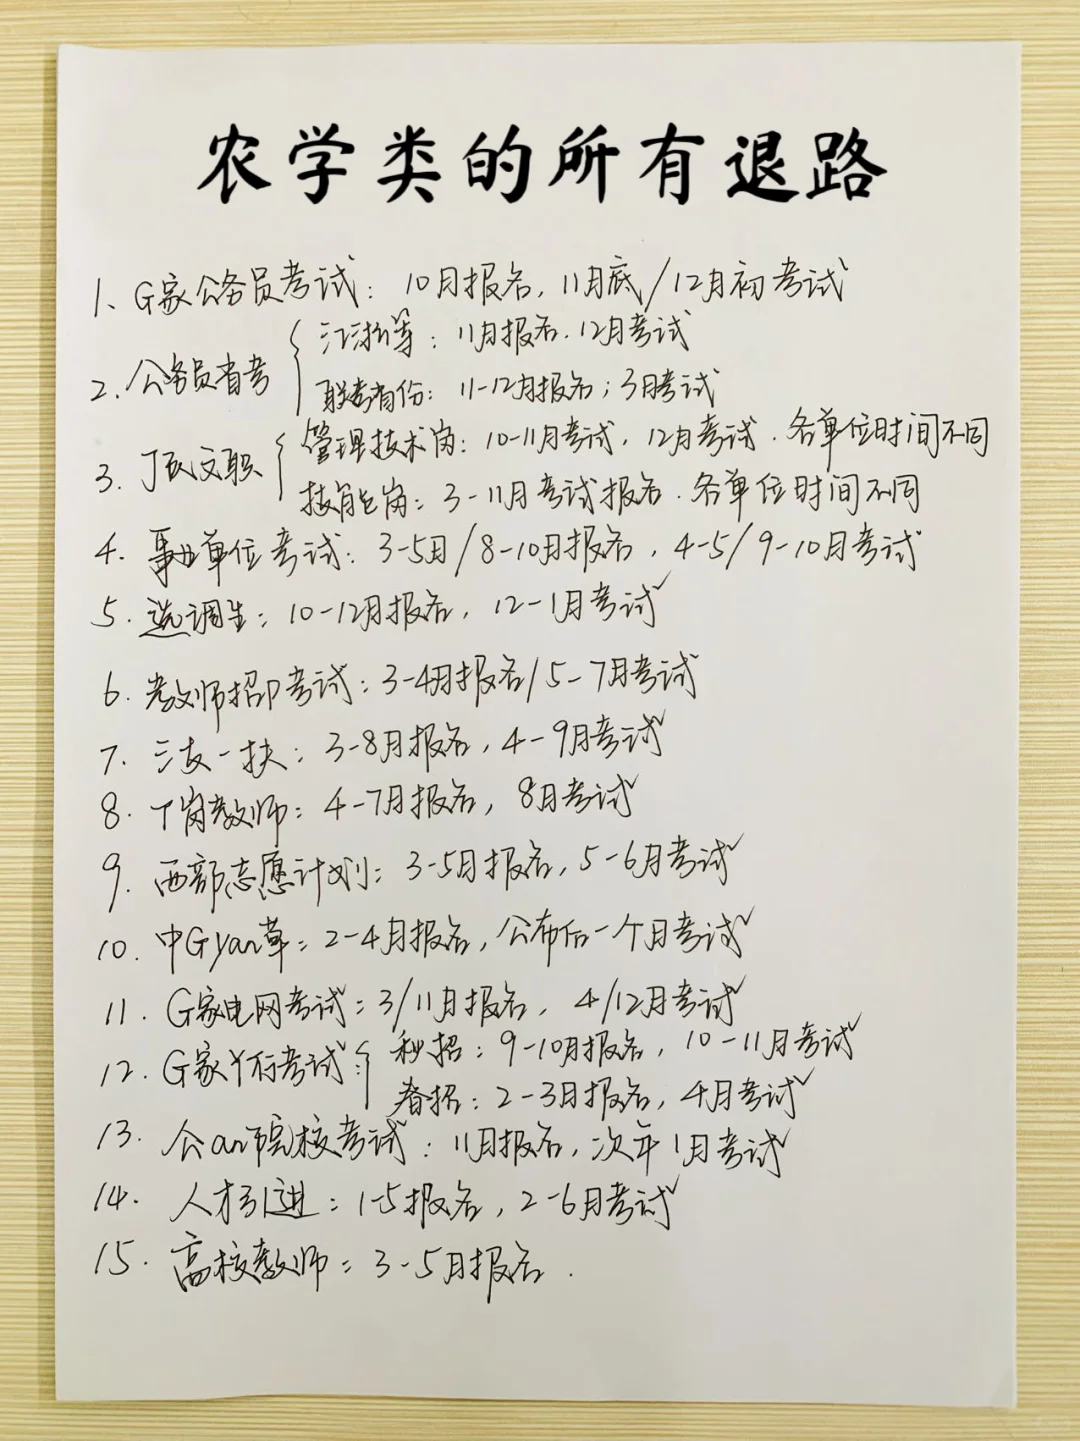 农学类的所有退路
1、G家公务员考试：10月报名，11月底/12月初考试
2.公务员省考
江浙等：11月报名.12月考试
联考省份：11-12月报名；3月考试
3.J民文职
管理技术岗：10-11月考试，12月考试.各单位时间不同
技能岗：3-11月考试报名.各单位时间不同
4.事业单位考试：3-5月/8-10月报名，4-5/9-10月考试
5.选调生：10-12月报名，12-1月考试
6.教师招聘考试：3-4月报名/5-7月考试
7.三支一扶：3-8月报名，4-9月考试
8.T岗教师：4-7月报名，8月考试
9.西部志愿计划：3-5月报名，5-6月考试
10.中Gyan草：2-4月报名，公布后一个月考试
11.G家电网考试：3/11月报名，4/12月考试
12.G家Y行考试：
秋招：9-10月报名，10-11月考试
春招：2-3月报名，4月考试
13.公an院校考试：11月报名，次年1月考试
14.人才引进：1-5报名，2-6月考试
15.高校教师：3-5月报名.